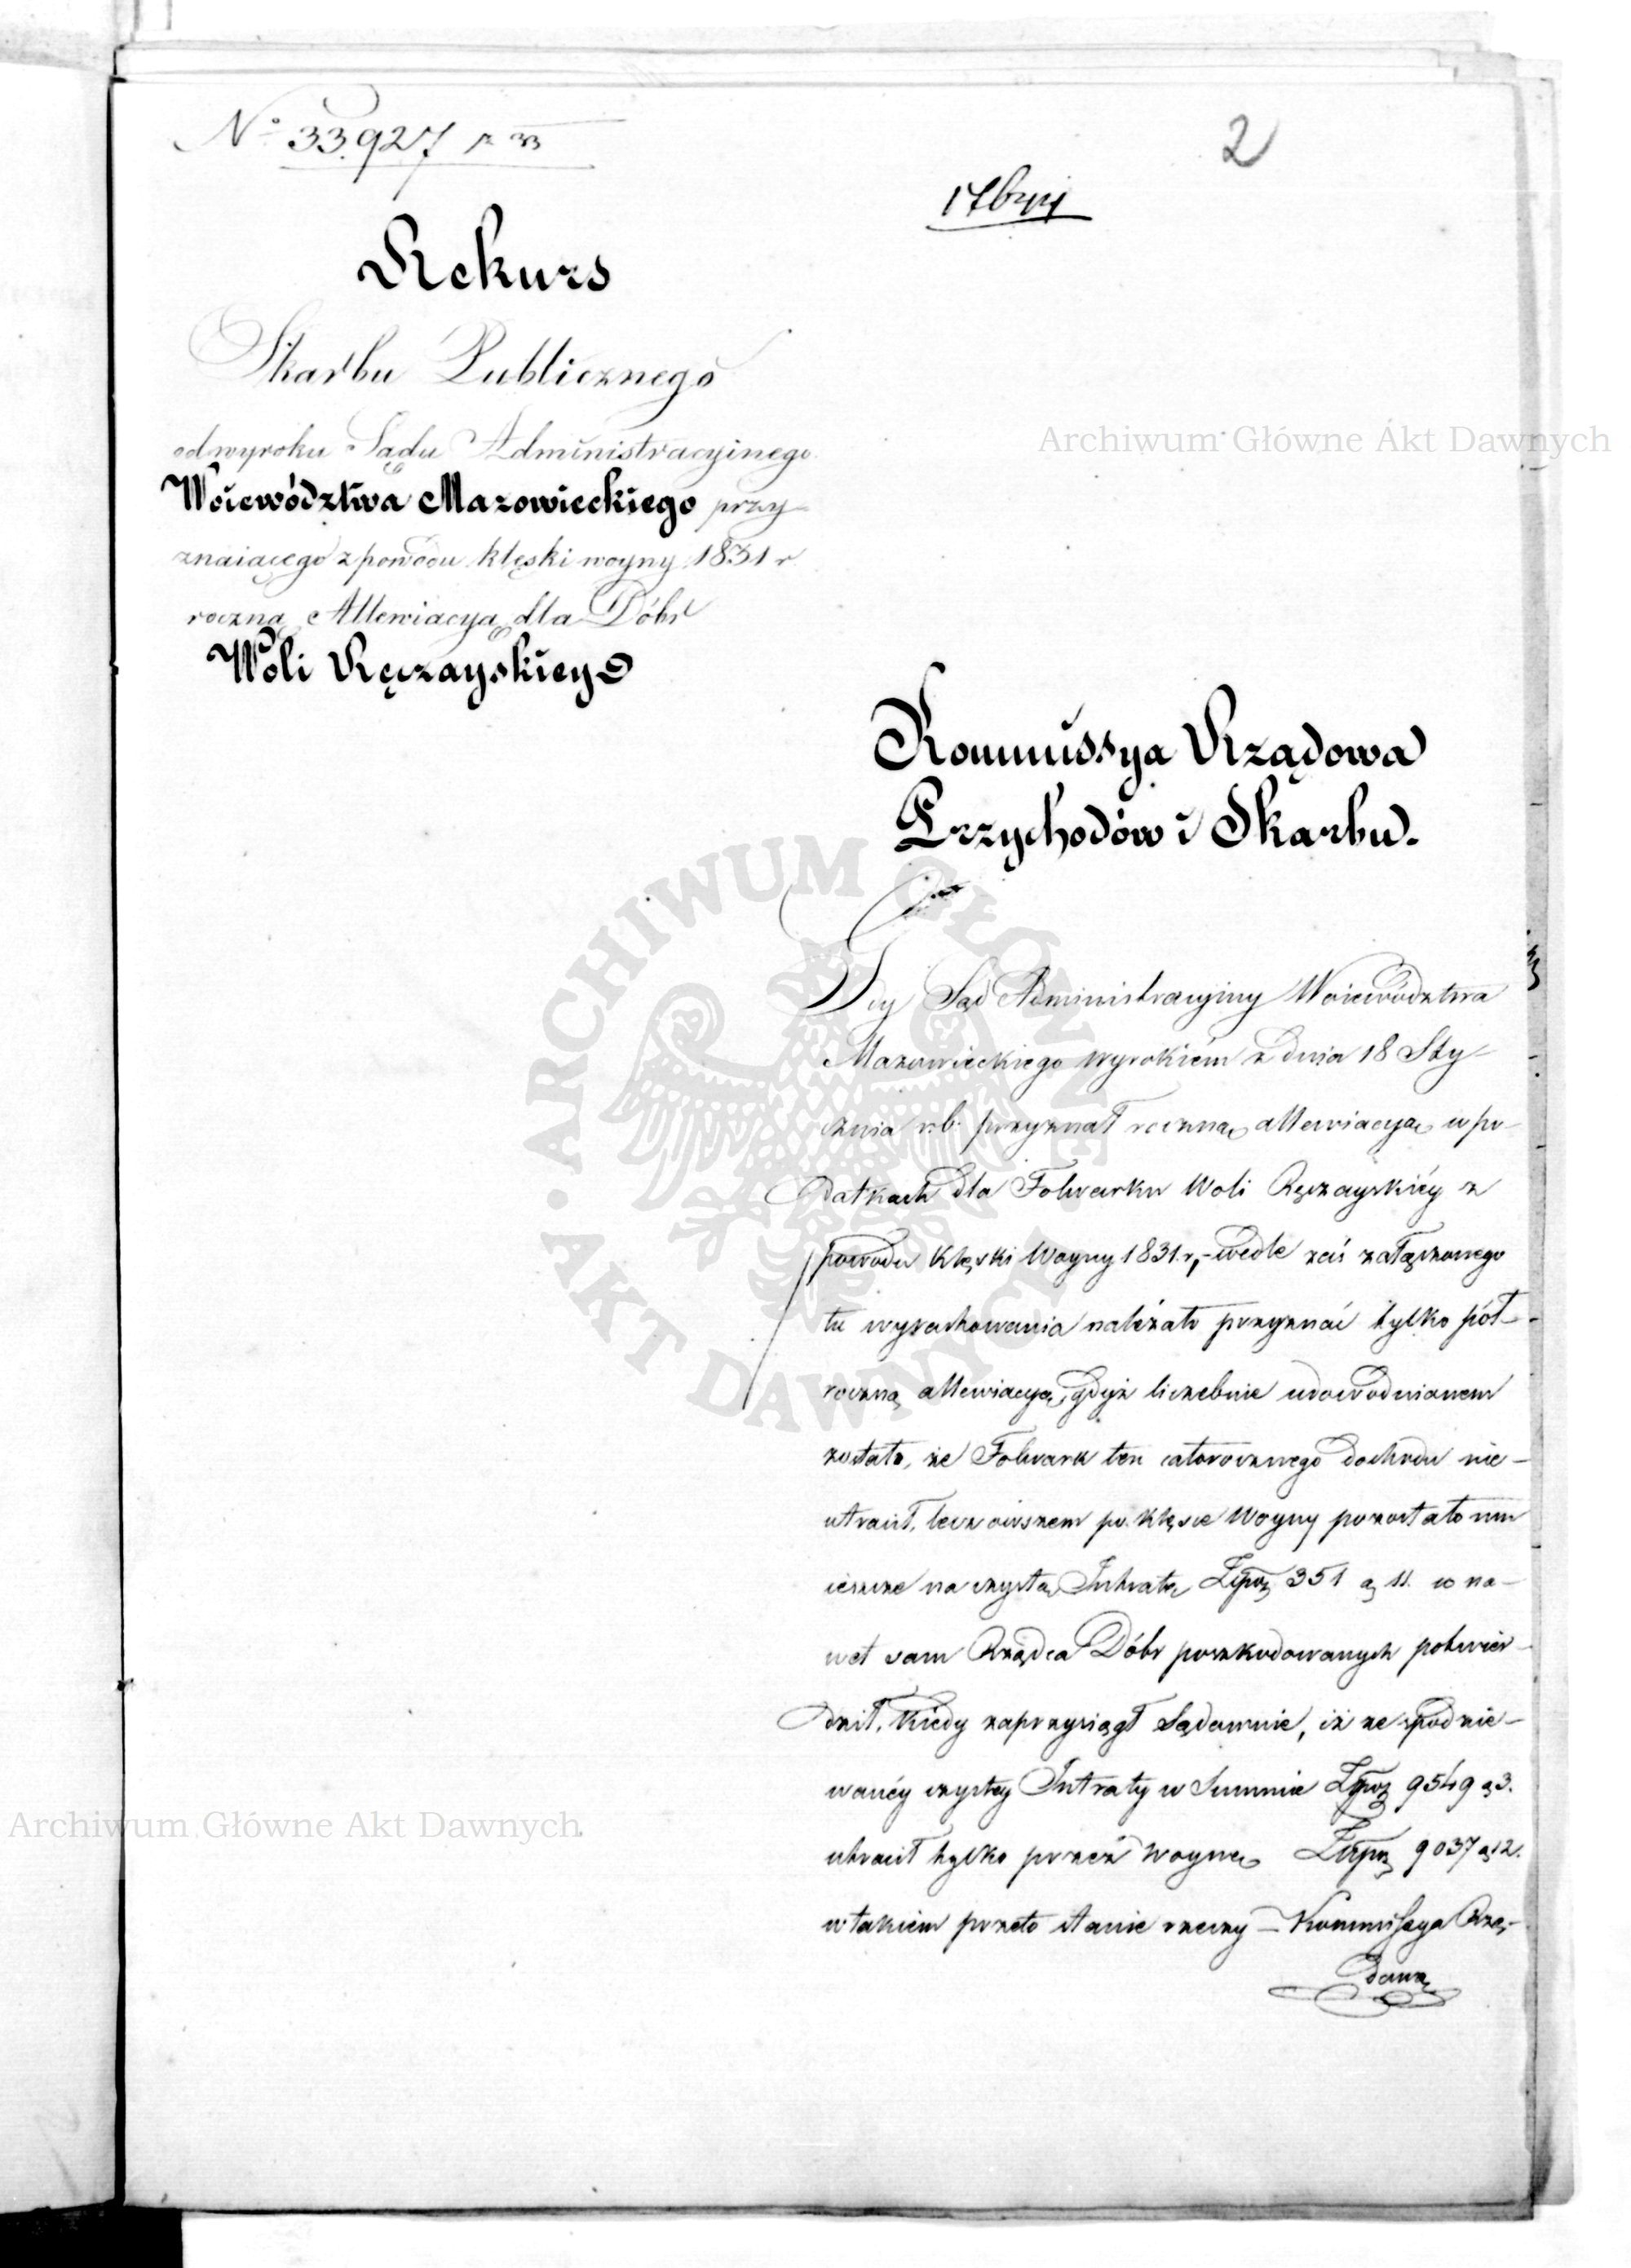 No 33.927 r 33
2
17bryj
Rekurs
Skarbu Publicznego
od wyroku Sądu Administracyinego
Woiewództwa Mazowieckiego przy-
znaiącego z powodu klęski woyny 1831 r
roczną Allewiacyą dla Dóbr
Woli Ręczayskiey
Kommissya Rządowa
Przychodów i Skarbu.
Archiwum Główne Akt Dawnych
ARCHIWUM GŁÓWNE · AKT DAWNYCH ·
Gdy Sąd Administracyiny Woiewództwa
Mazowieckiego wyrokiem z dnia 18 Sty-
cznia r.b. przyznał roczną allewiacyą w po-
datkach dla Folwarku Woli Ręczayskiéy z
powodu Klęski Woyny 1831 r, - wedle zaś załączonego
tu wyrachowania należało przyznać tylko pół-
roczną allewiacyą, gdyż liczebnie udowodnianem
zostało, że Folwark ten całorocznego dochodu nie-
utracił, lecz owszem po klęsce Woyny pozostało mu
ieszcze na czystą Intratę Złp. 351 g 11. co na-
wet sam Rządca Dóbr poszkodowanych potwier-
dził, Kiedy zaprzysiągł Sądownie, iż ze spodzie-
wanéy czystey Intraty w Summie Złp. 9549 g 3.
utracił tylko przez woynę Złp. 9037 g 12.
w takiem przeto stanie rzeczy - Kommissya Rzą-
dowa
Archiwum Główne Akt Dawnych